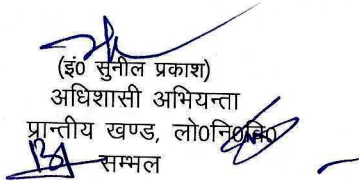 (इं0 सुनील प्रकाश)
अधिशासी अभियन्ता
प्रान्तीय खण्ड, लो0नि0वि0
सम्भल